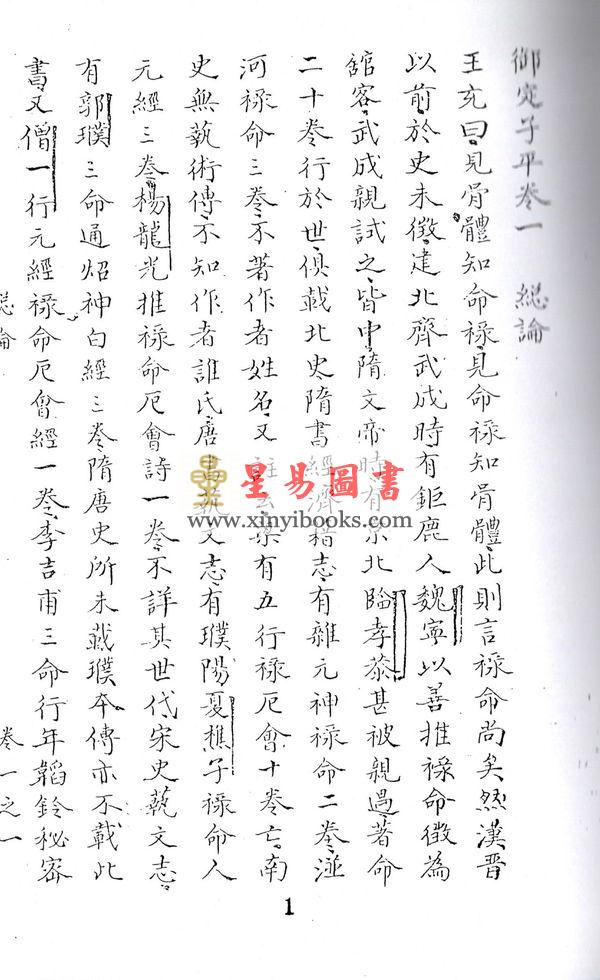 御定子平卷一　總論
王充曰見骨體知命祿見命祿知骨體此則言祿命尚矣然漢晋
以前於史未徵建北齊武成時有鉅鹿人魏寧以善推祿命徵為
舘客武成親試之皆中隋文帝時有京北臨孝恭甚被親遇著命
二十卷行於世俱載北史隋書經濟籍志有雜元神祿命二卷湴
河祿命三卷不著作者姓名又註云梁有五行祿厄會十卷亡南
史無藝術傳不知作者誰氏唐書藝文志有濮陽夏樵子祿命人
元經三卷楊龍光推祿命厄會詩一卷不詳其世代宋史藝文志
有郭璞三命通炤神白經三卷隋唐史所未載璞本傳亦不載此
書又僧一行元經祿命厄會經一卷李吉甫三命行年韜鈐秘密
總論
卷一之一
1
星易圖書
www.xinyibooks.com